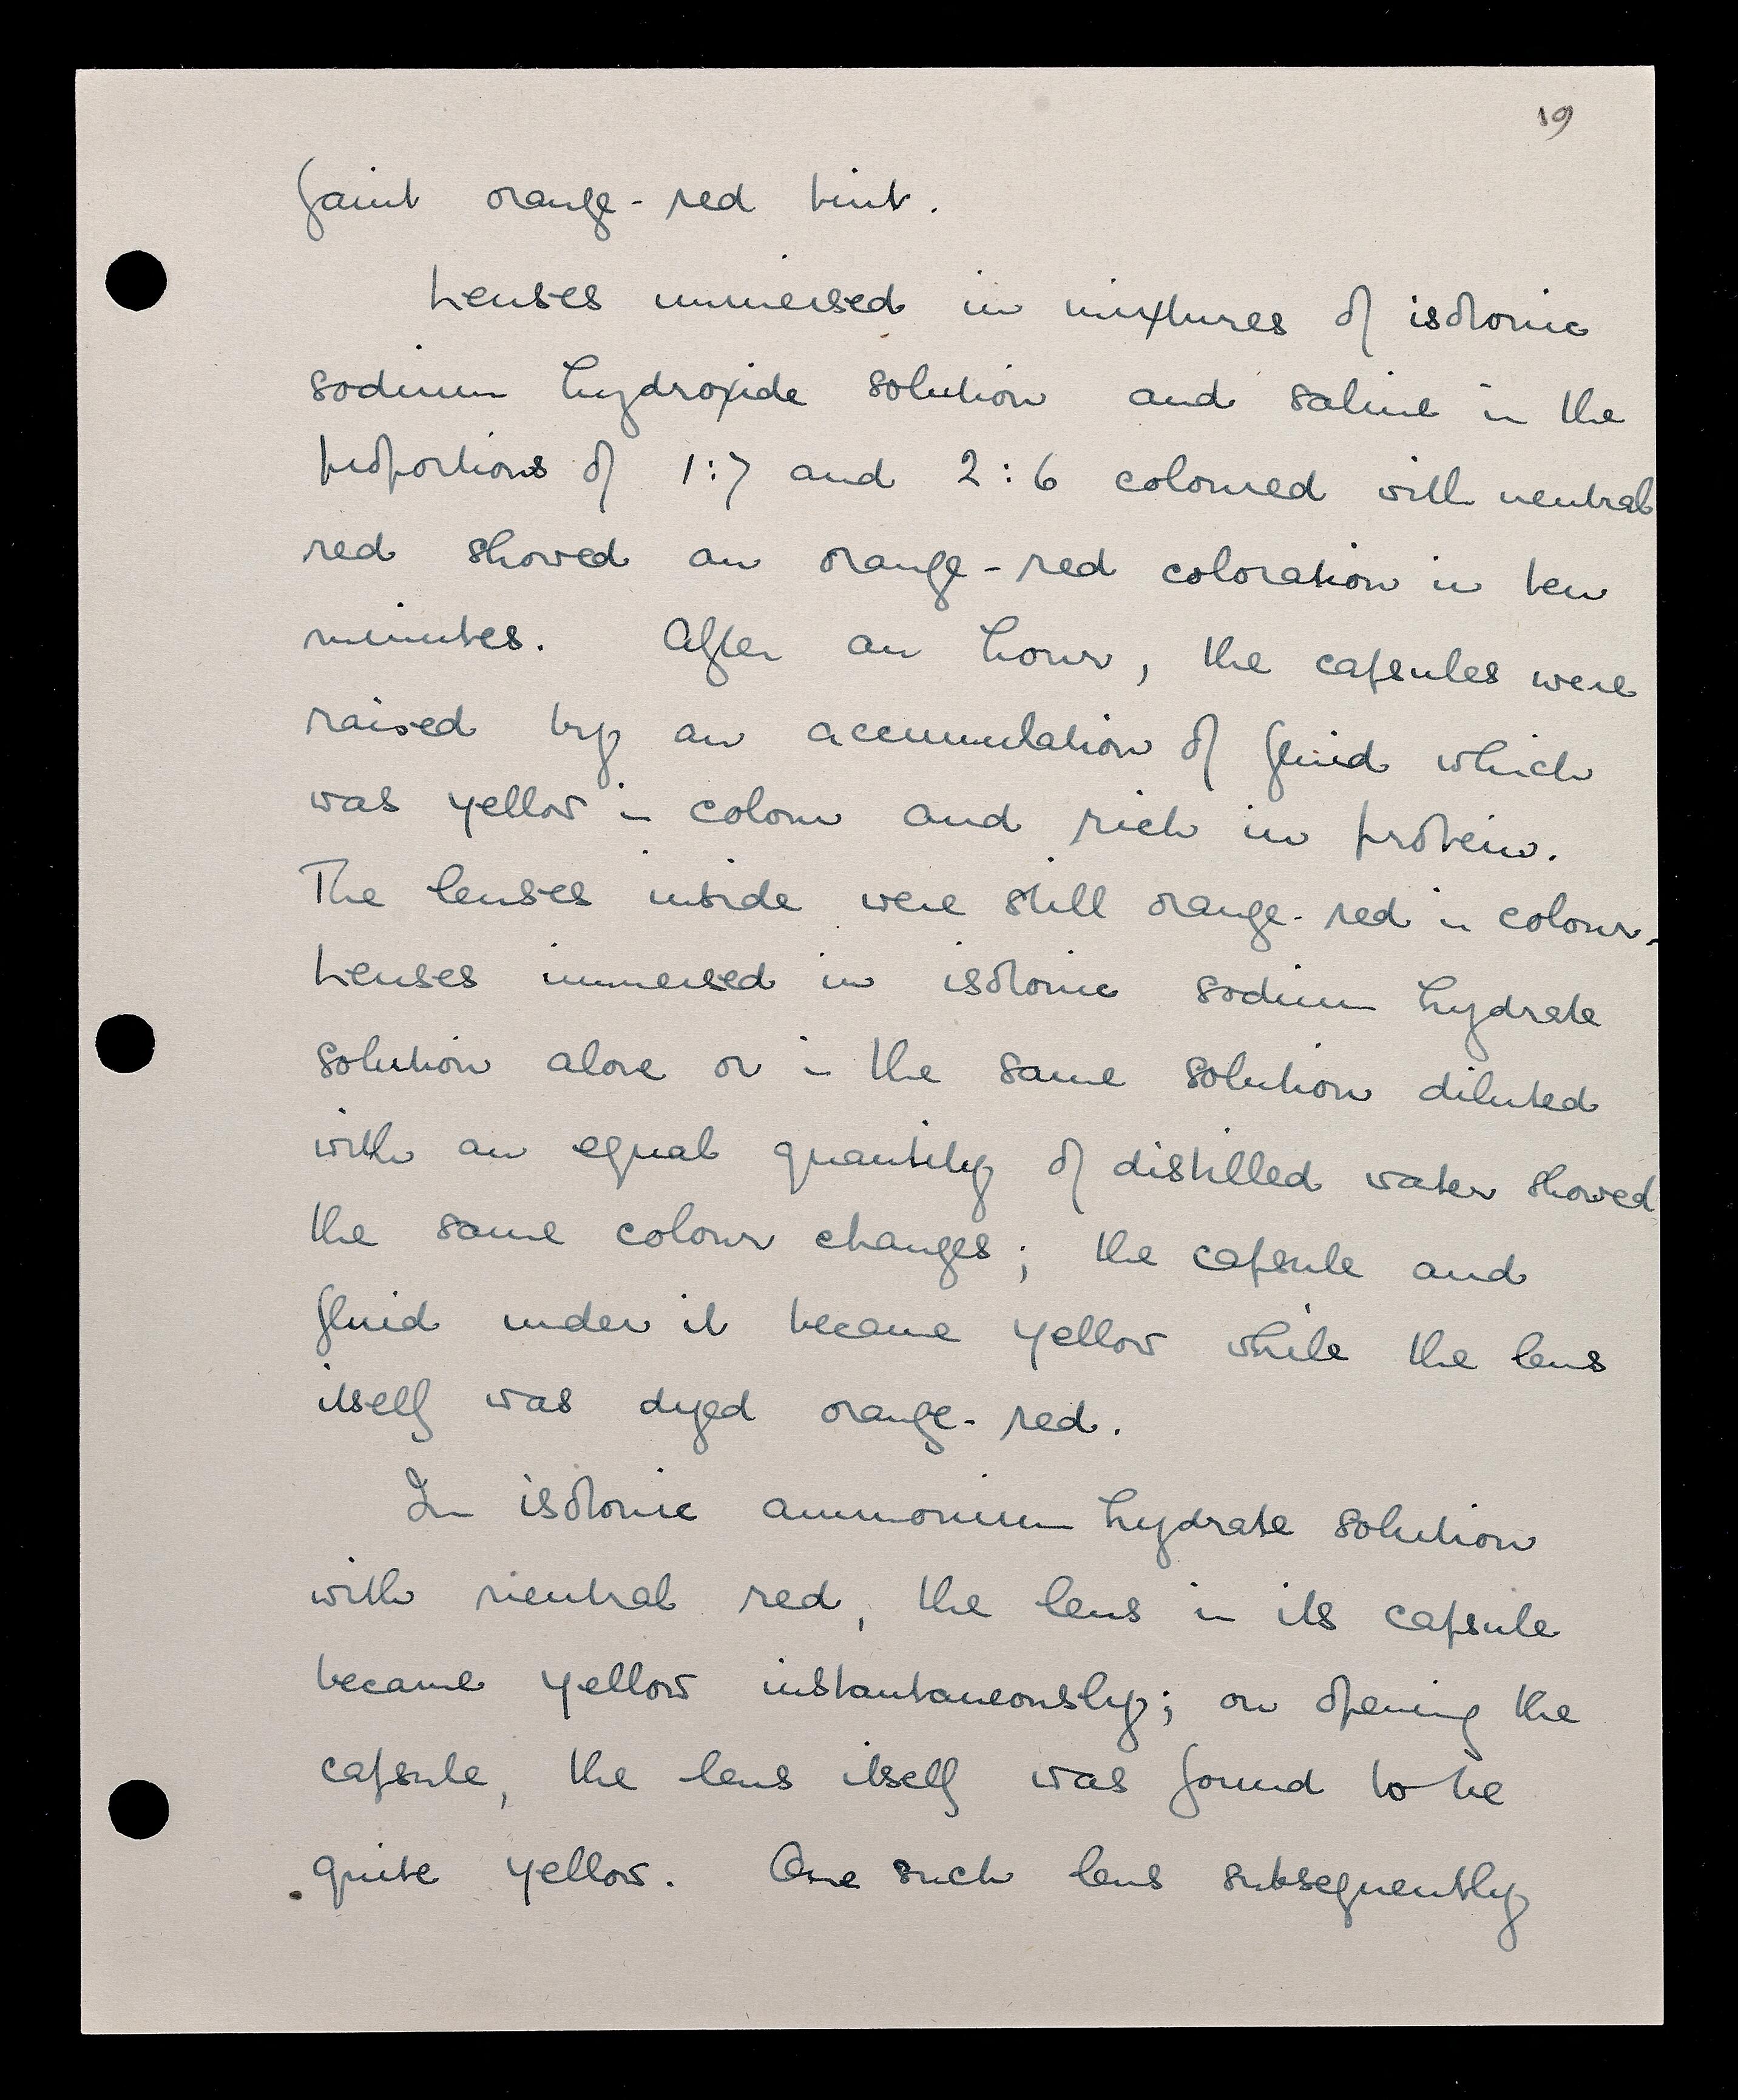 19
faint orange-red tint.
Lenses immersed in mixtures of isotonic
sodium hydroxide solution and saline in the
proportions of 1:7 and 2:6 coloured with neutral
red showed an orange-red coloration in ten
minutes. After an hour, the capsules were
raised by an accumulation of fluid which
was yellow in colour and rich in protein.
The lenses inside were still orange-red in colour.
Lenses immersed in isotonic sodium hydrate
solution alone or in the same solution diluted
with an equal quantity of distilled water showed
the same colour changes; the capsule and
fluid under it became yellow while the lens
itself was dyed orange-red.
In isotonic ammonium hydrate solution
with neutral red, the lens in its capsule
became yellow instantaneously; on opening the
capsule, the lens itself was found to be
quite yellow. One such lens subsequently